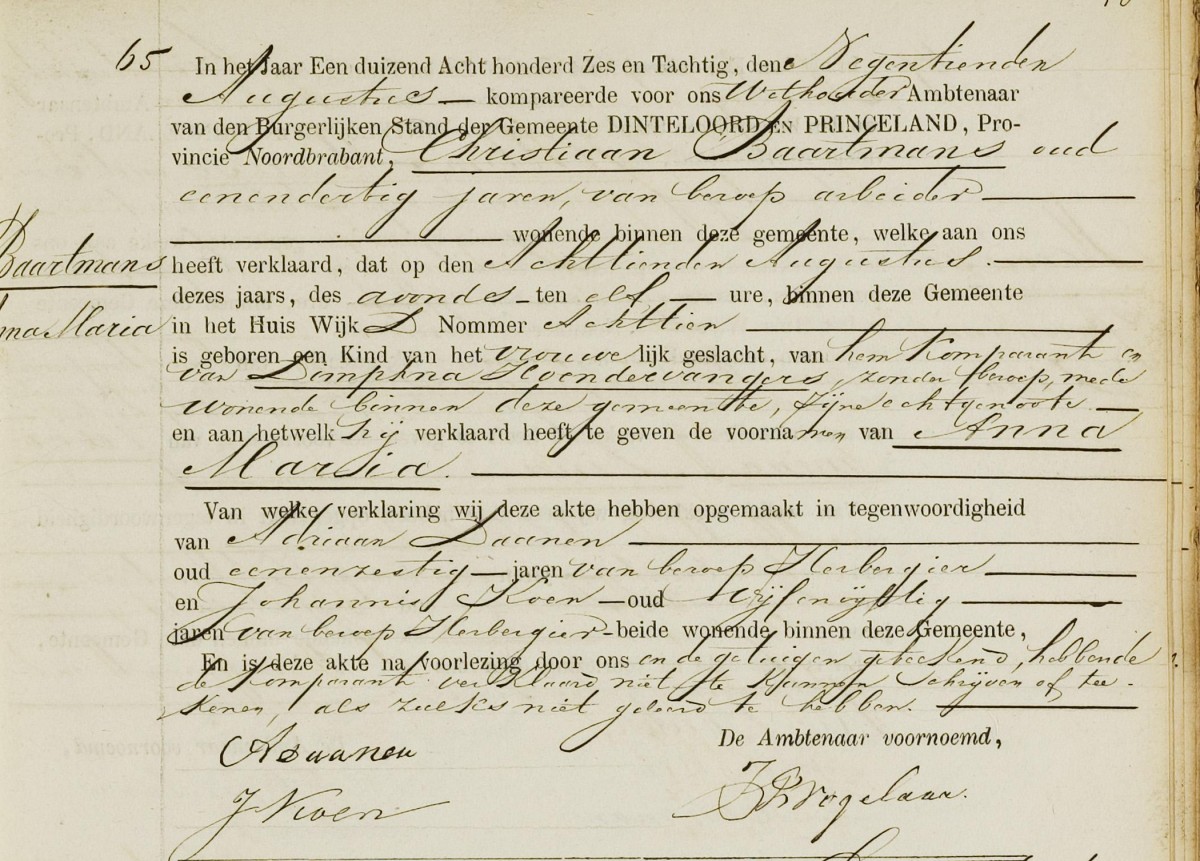 65 In het Jaar Een duizend Acht honderd Zes en Tachtig, den Negentienden
Augustus kompareerde voor ons Wethouder Ambtenaar
van den Burgerlijken Stand der Gemeente DINTELOORD EN PRINCELAND, Pro-
vincie Noordbrabant, Christiaan Baartmans oud
eenendertig jaren, van beroep arbeider
wonende binnen deze gemeente, welke aan ons
Baartmans heeft verklaard, dat op den Achttienden Augustus.
dezes jaars, des avonds ten elf ure, binnen deze Gemeente
Maria in het Huis Wijk D Nommer Achttien
is geboren een Kind van het vrouwelijk geslacht, van hem Komparant en
van Dimphna Hoendervangers, zonder beroep, mede
wonende binnen deze gemeente, zijne echtgenoote
en aan hetwelk hij verklaard heeft te geven de voornamen van Anna
Maria.
Van welke verklaring wij deze akte hebben opgemaakt in tegenwoordigheid
van Adriaan Daanen
oud eenenzestig jaren van beroep Herbergier
en Johannis Koen oud Vijfenvijftig
jaren van beroep Herbergier beide wonende binnen deze Gemeente,
En is deze akte na voorlezing door ons en de getuigen geteekend, hebbende
de Komparant verklaard niet te kunnen Schrijven of tee-
kenen, als zulks niet geleerd te hebben.
De Ambtenaar voornoemd,
A Daanen
J Koen
Vogelaar.